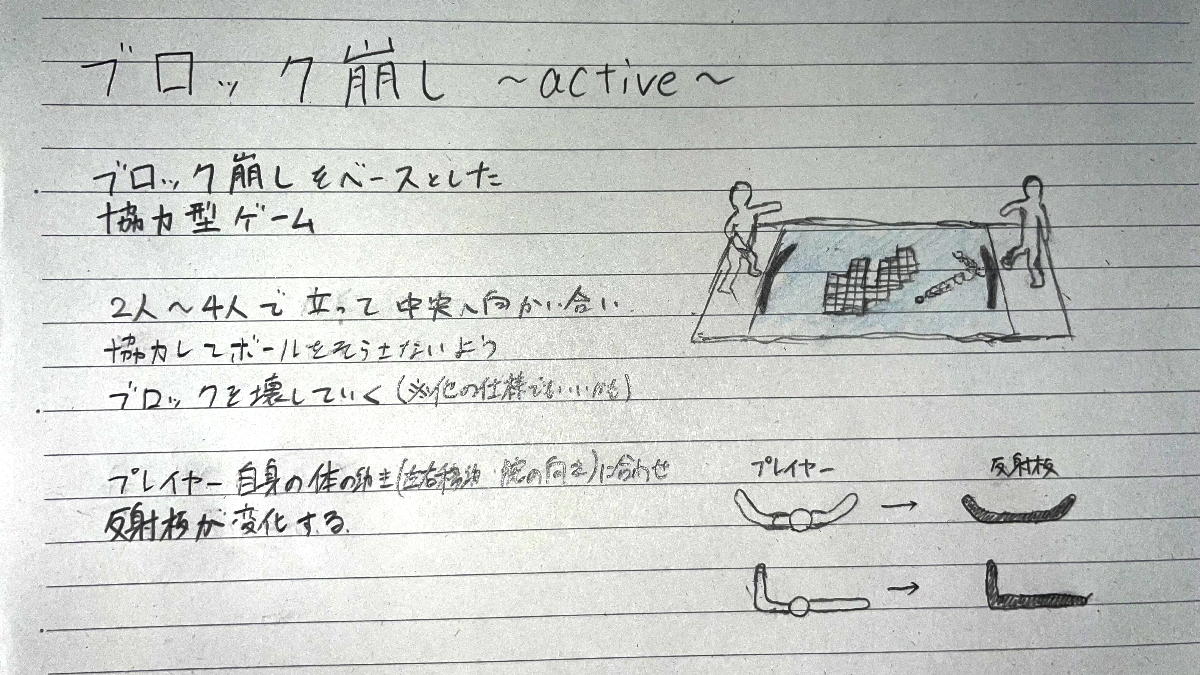 ブロック崩し ～active～
ブロック崩しをベースとした
協力型ゲーム
2人～4人で立って中央へ向かい合い
協力してボールをそらさないよう
ブロックを壊していく(※他の仕様でもいいかも)
プレイヤー自身の体の動き(左右移動・腕の向き)に合わせ
反射板が変化する。
プレイヤー
反射板